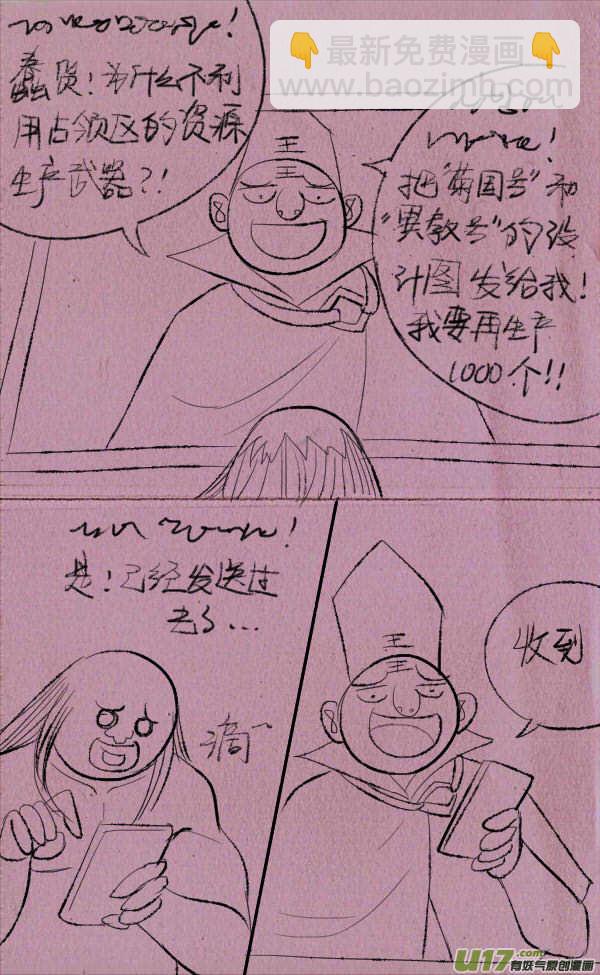 最新免费漫画
www.baozimh.com
蠢货！为什么不利
用占领区的资源
生产武器？！
把“菊国号”和
“異教号”的设
计图发给我！
我要再生产
1000个!!
王
王
是！已经发送过
去了...
滴~
王
王
收到
U17.com
有妖气原创漫画